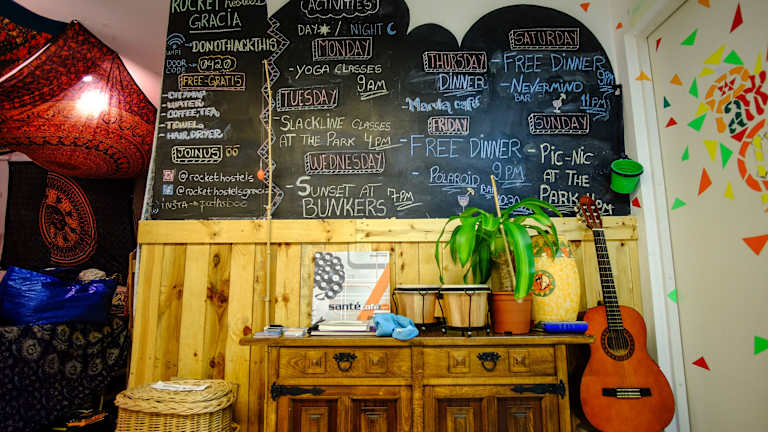 ROCKET hostels
GRACIA
WIFI
-DONOTHACKTHIS
DOOR
CODE 0420
FREE-GRATIS
-CITYMAP
-WATER
-COFFEE, TEA
-TOWELS
-HAIR, DRYER
JOIN US
@rockethostels
@rockethostelsgracia
(ACTIVITIES)
DAY NIGHT
MONDAY
-YOGA CLASSES
9AM
TUESDAY
SLACKLINE CLASSES
AT THE PARK 4PM
WEDNESDAY
-SUNSET AT
BUNKERS 7PM
THURSDAY
DINNER
Manila café
FRIDAY
-FREE DINNER
9PM
-POLAROID
BAR
10:30
SATURDAY
-FREE DINNER
9PM
-NEVERMIND
BAR 11PM
SUNDAY
-PIC-NIC
AT THE
PARK
santé